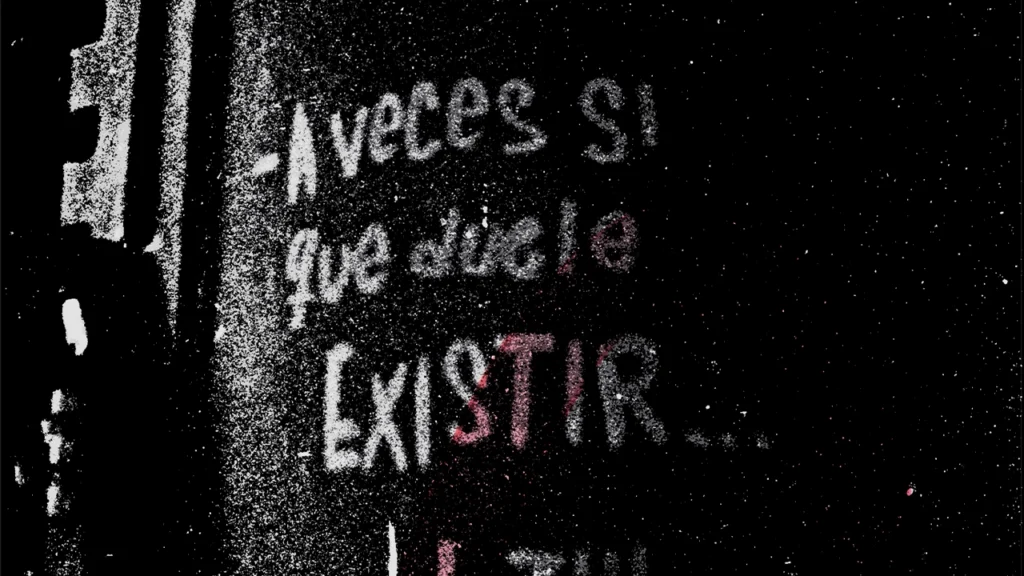 -A veces Si
que duele
EXISTIR...